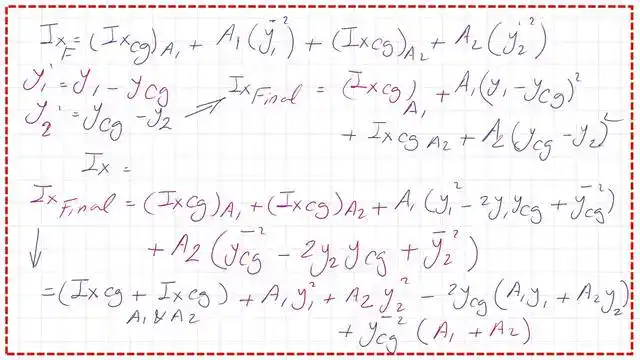 Ix_F = (Ixcg)_A1 + A1(ȳ1'²) + (Ixcg)_A2 + A2(ȳ2'²)
y1' = y1 - ycg
Ix Final = (Ixcg)_A1 + A1(y1 - ycg)²
y2' = ycg - y2
+ Ixcg A2 + A2(ycg - y2)²
Ix =
Ix Final = (Ixcg)_A1 + (Ixcg)_A2 + A1(y1² - 2y1ycg + ȳcg²)
+ A2(ȳcg² - 2y2ycg + ȳ2²)
↓
= (Ixcg + Ixcg)_A1 & A2 + A1y1² + A2y2² - 2ycg(A1y1 + A2y2)
+ ȳcg²(A1 + A2)